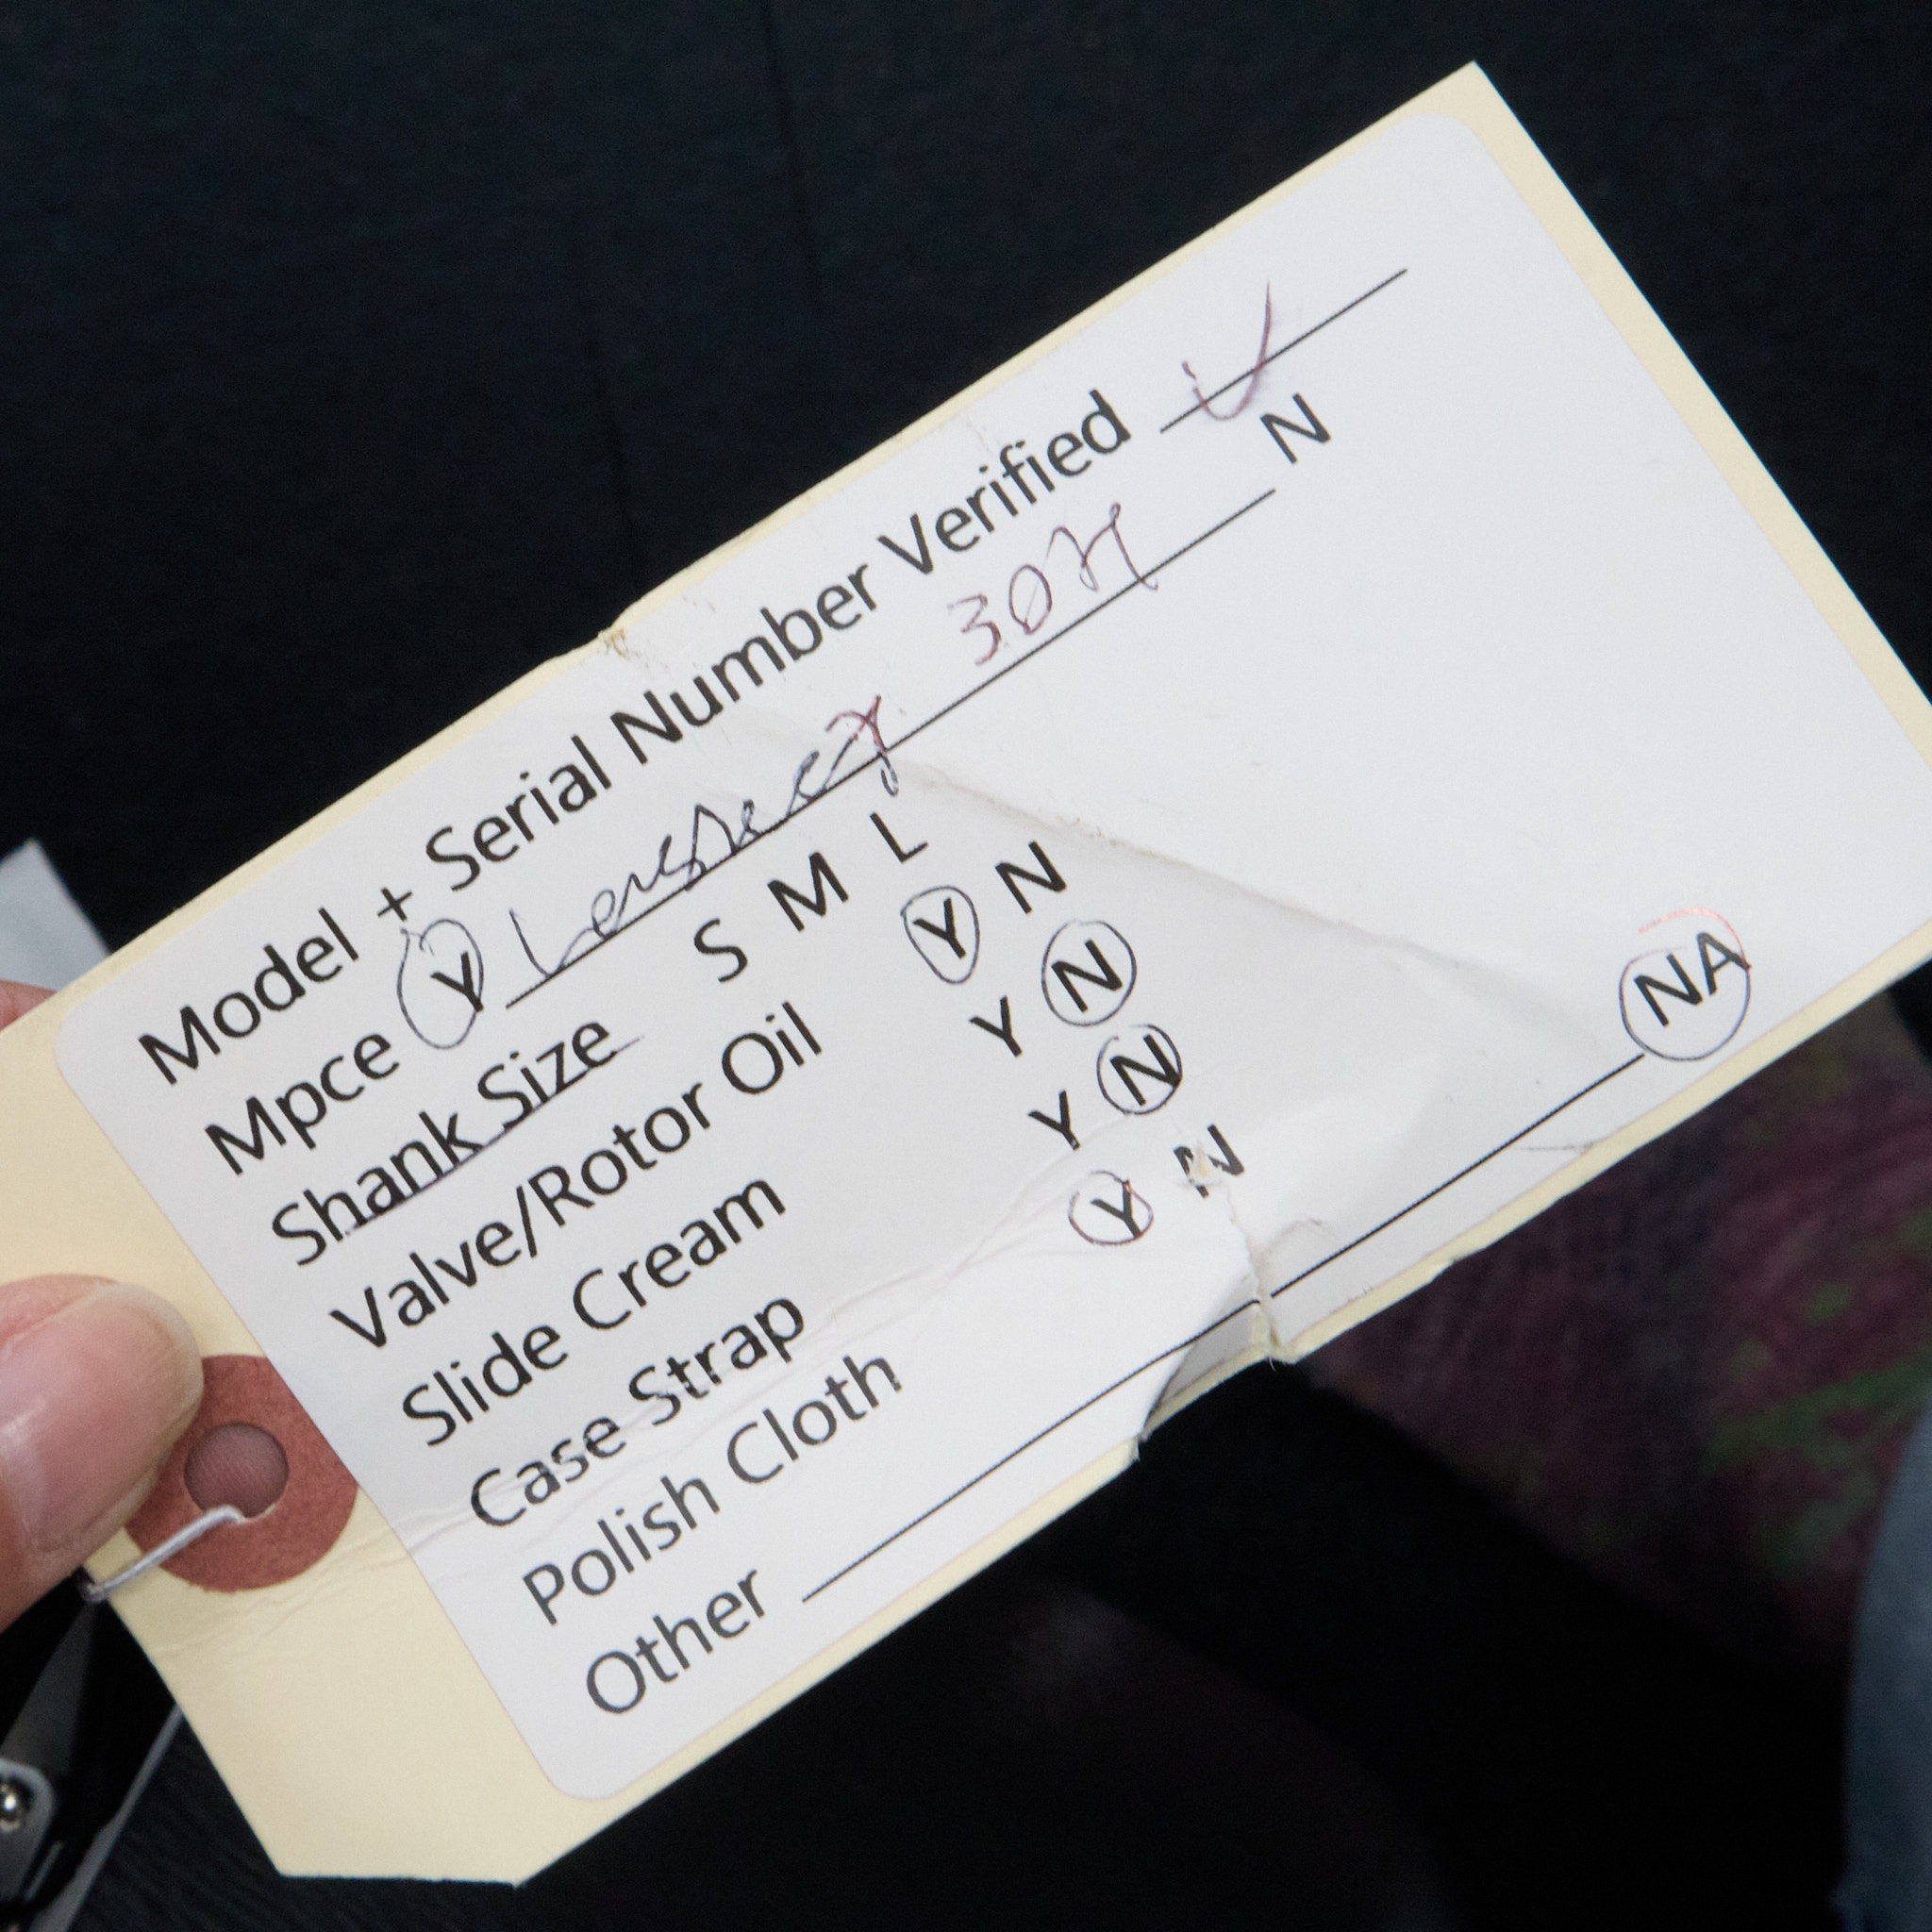 Model + Serial Number Verified ✓
Mpce Y 30H N
Shank Size S M L
Valve/Rotor Oil Y N
Slide Cream Y N
Case Strap Y N
Polish Cloth Y N
Other NA